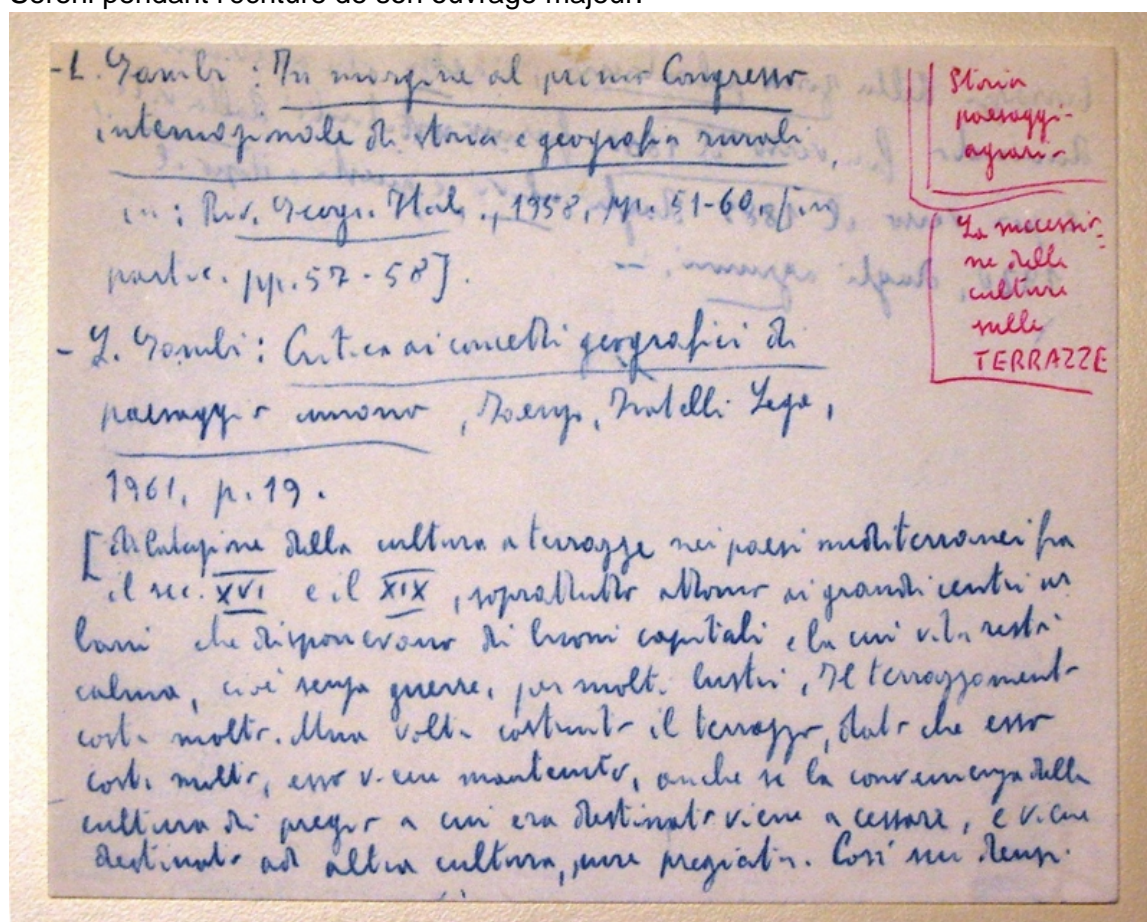 Sereni pendant l'écriture de son ouvrage majeur.
- L. Gambi: In margine al primo Congresso
internazionale di storia e geografia rurali,
in: Riv. Geogr. Ital., 1958, pp. 51-60, [in
partic. pp. 57-58].
- L. Gambi: Critica ai concetti geografici di
paesaggio umano, Faenza, Fratelli Lega,
1961, p. 19.
[dilatazione della cultura a terrazze nei paesi mediterranei fra
il sec. XVI e il XIX, soprattutto attorno ai grandi centri ur
bani che disponevano di buoni capitali e la cui vita restò
calma, cioè senza guerre, per molti lustri, Il terrazzamento
costa molto. Una volta costruito il terrazzo, dato che esso
costa molto, esso viene mantenuto, anche se la convenienza della
cultura di pregio a cui era destinato viene a cessare, e viene
destinato ad altra cultura, pure pregiata. Così sui
Storia
paesaggi-
agrario
La successio-
ne delle
culture
sulle
TERRAZZE